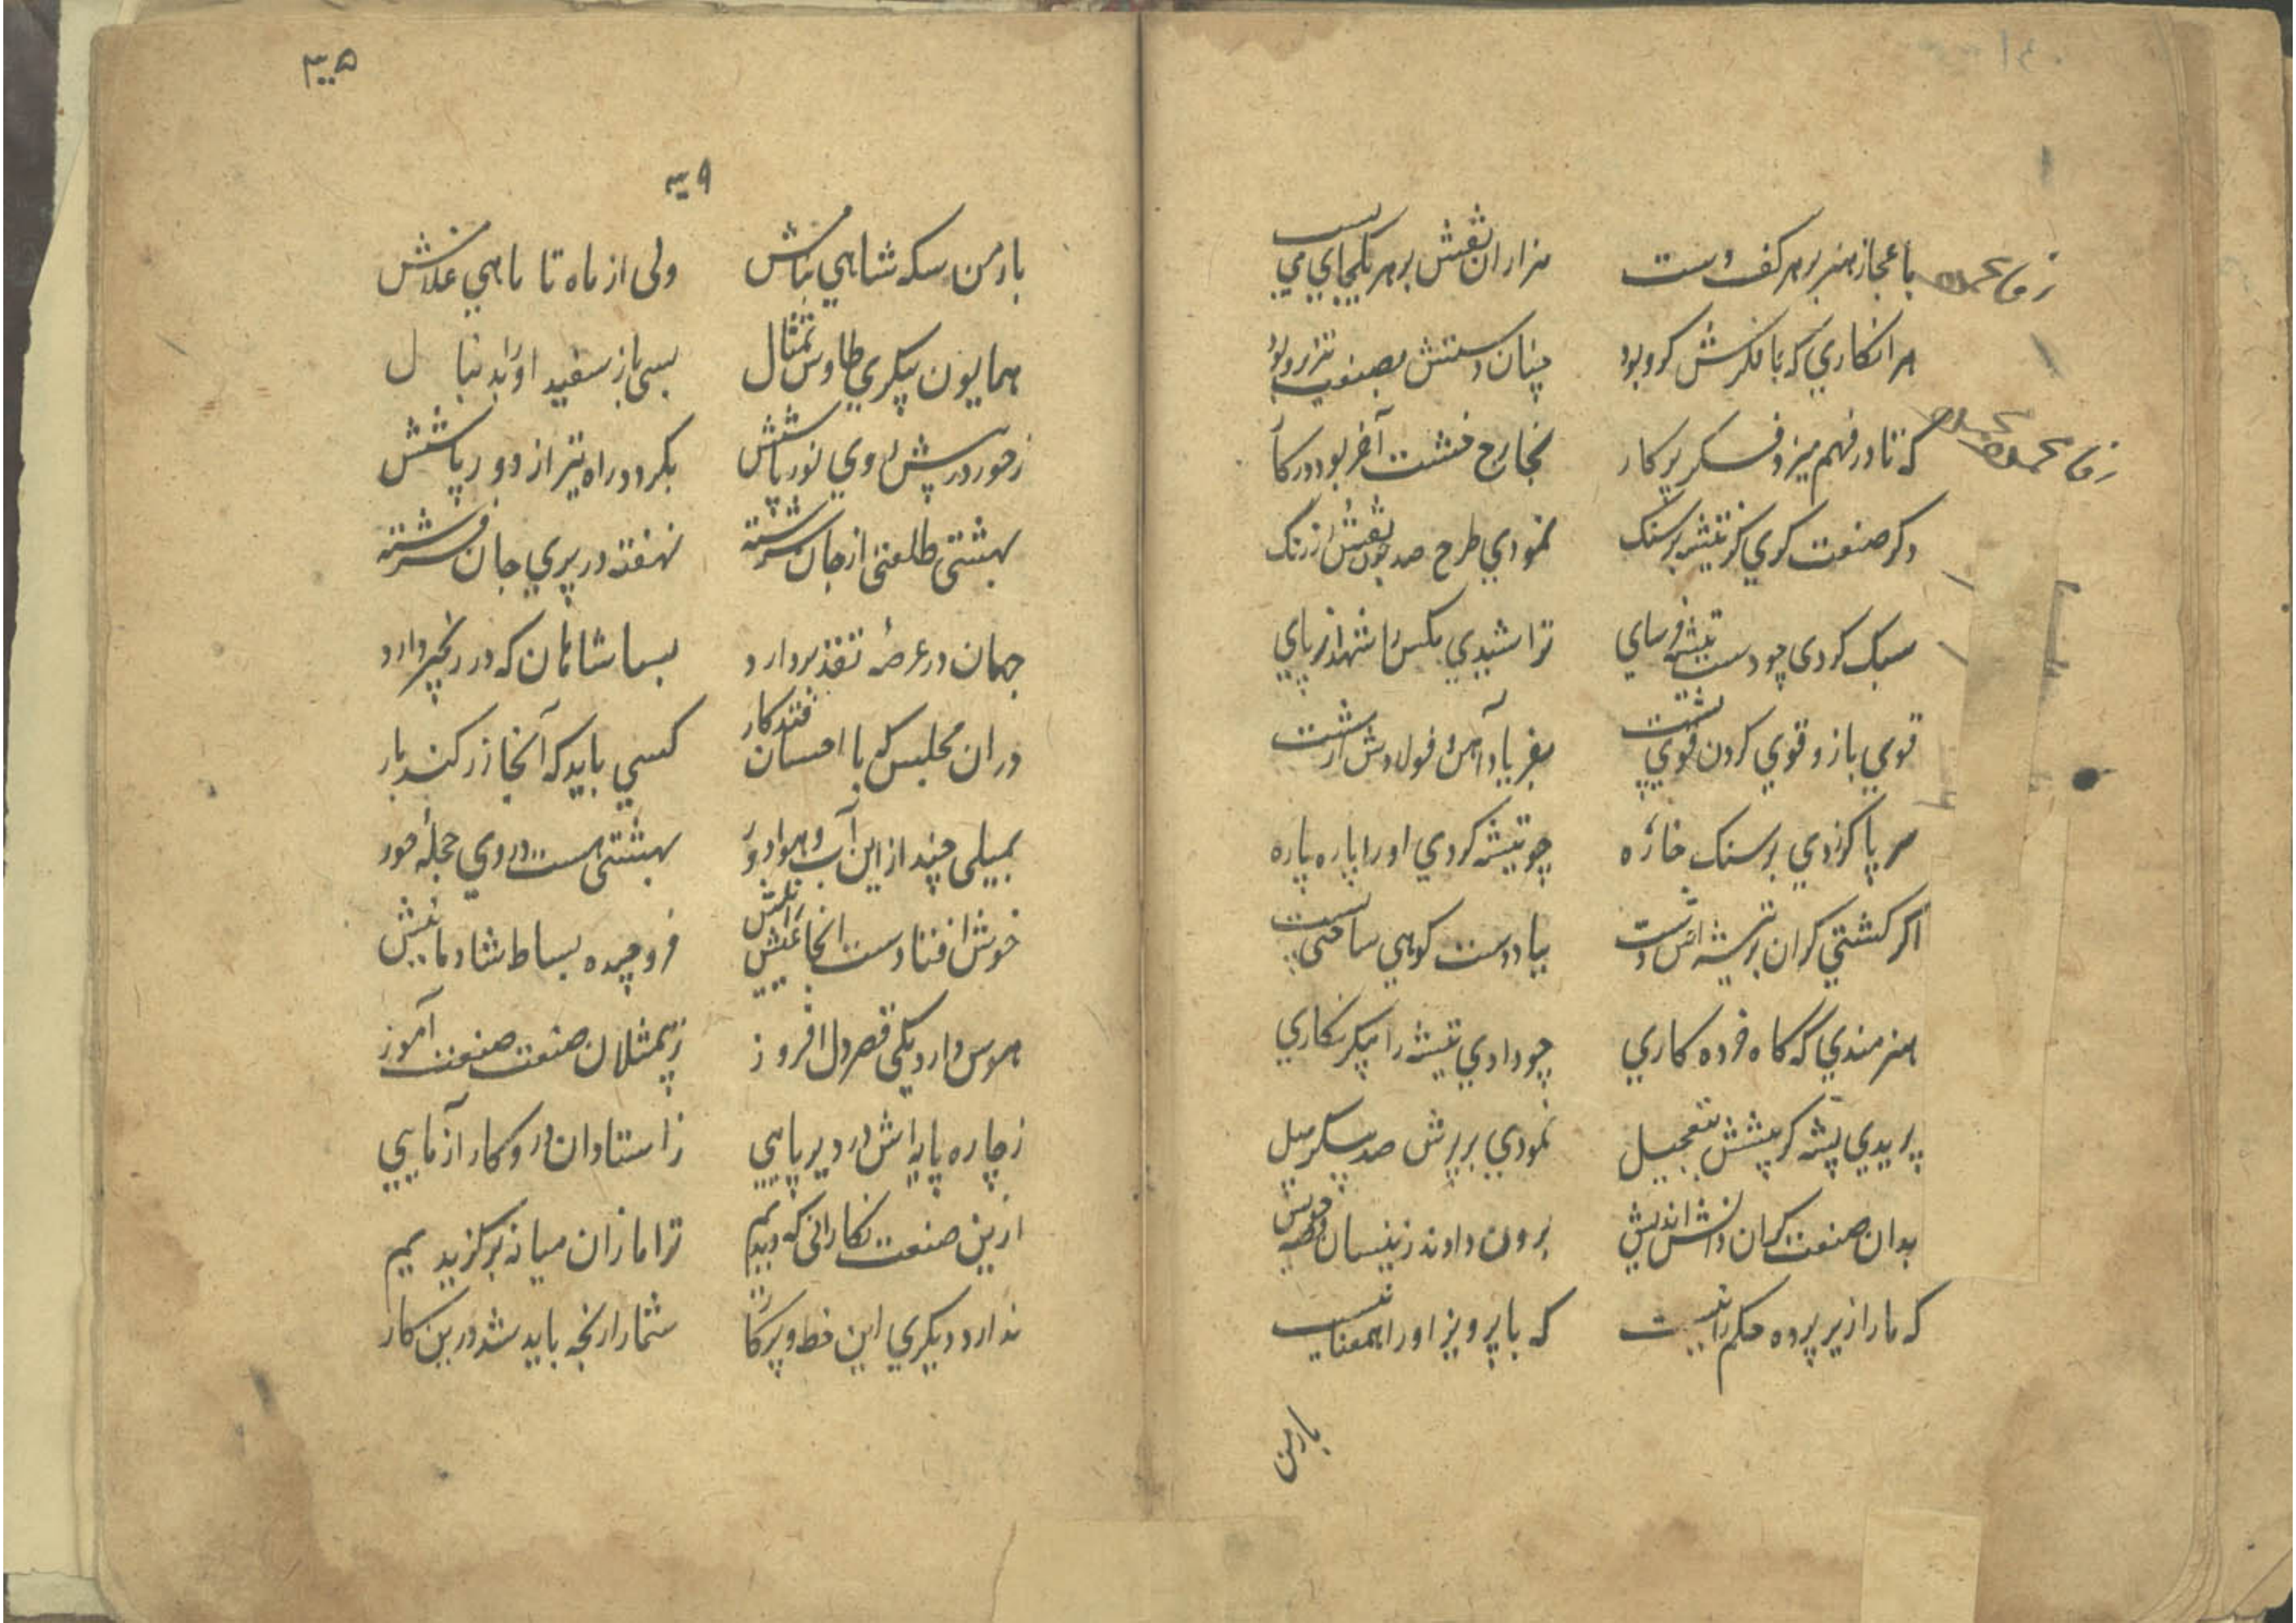 باعجاز هنر بر هر کف دست هزاران نقش بر هر یکجای می بست
هر انکاری که با فکرش کرو بود چنان دستش بصنعت تیزرو بود
که تا در فهم میزد فکر پرکار بخارج خشت آخر بود در کار
دکر صنعت کری کز تیشه بر سنک نمودی طرح صد چون نقش ارژنگ
سبک کردی چو دست تیشه فرسای تراشیدی مکس را شهد از پای
قوی بازو قوی کردن قوی پشت بفریاد آهن و فولادش از مشت
سر پا کر زدی بر سنک خاره چو تیشه کردی او را پاره پاره
اکر کشتی کران بر تیشه اش دست بیاد دست کوهی ساختی پست
هنرمندی که گاه خرده کاری چو دادی تیشه را پیکر نکاری
پریدی پشه کر پیشش بتعجیل نمودی بر پرش صد پیکر پیل
بدان صنعت کران دانش اندیش برون دادند زینسان قصه خویش
که ما را زیر پرده حکمرانیست که با پرویز او را همعنانیست
بارمن
۹۳
بارمن سکه شاهی بنامش ولی از ماه تا ماهی غلامش
همایون پیکری طاوس تمثال بسی باز سفید او را بدنبال
ز حور در پیش روی نور پاشش بکرد دور راه نیز از دور پاشش
بهشتی طلعتی از جان سرشته نهفته در پری جان فرشته
جهان در عرصه تقدیر دارد بسا شاهان که در زنجیر دارد
دران مجلس که با احسان فتد کار کسی باید که آنجا زر کند بار
بمیلی چند از این آب و هوا دور بهشتی هست در وی حجله حور
خوش افتادست انجا عیش رانیش فرو چیده بساط شادمانیش
هوس دارد یکی قصر دل افروز ز بیمثلان صنعت صنعت آموز
ز چاره پایه اش در دیر پایی ز استادان درو کار آزمایی
ازین صنعت نکارانی که دیدیم ترا ما زان میانه برکزیدیم
ندارد دیکری این خط و پرکار شما را رنجه باید شد درین کار